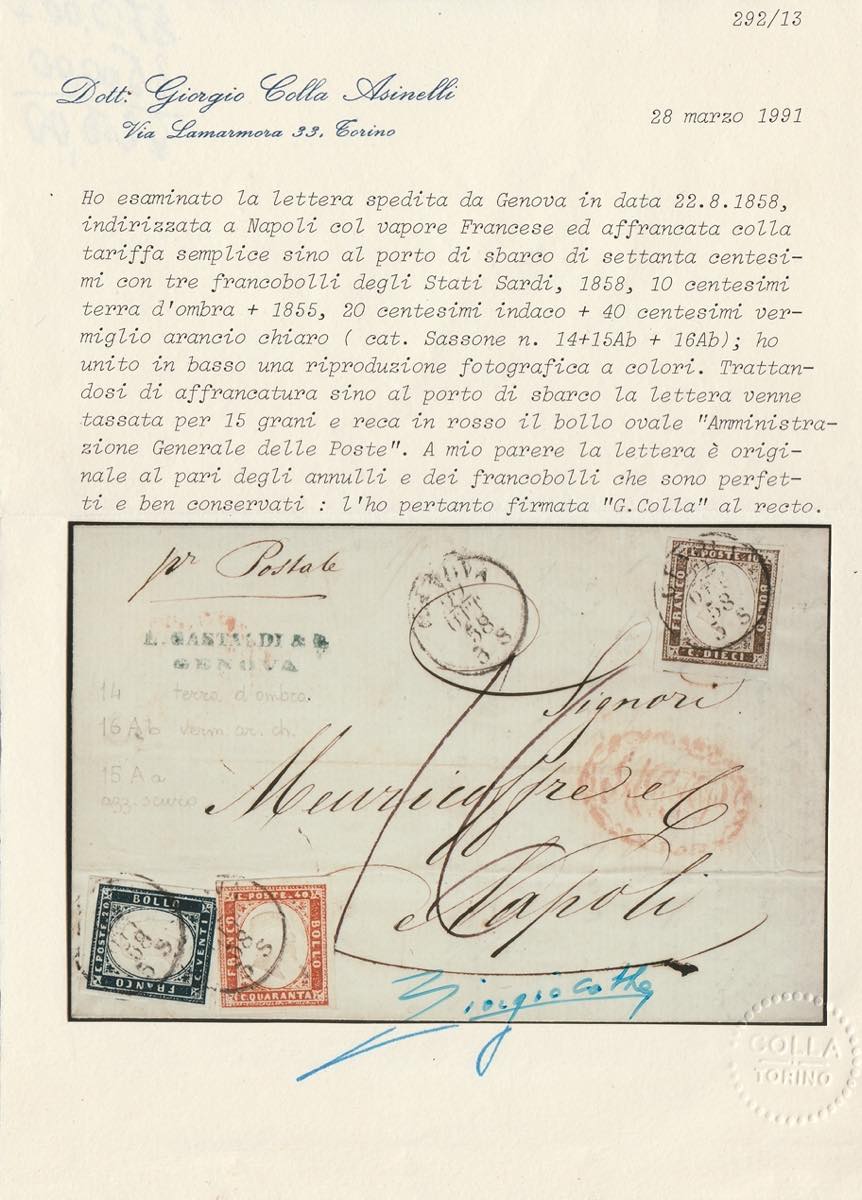 292/13
Dott: Giorgio Colla Asinelli
Via Lamarmora 33, Torino
28 marzo 1991
Ho esaminato la lettera spedita da Genova in data 22.8.1858,
indirizzata a Napoli col vapore Francese ed affrancata colla
tariffa semplice sino al porto di sbarco di settanta centesi-
mi con tre francobolli degli Stati Sardi, 1858, 10 centesimi
terra d'ombra + 1855, 20 centesimi indaco + 40 centesimi ver-
miglio arancio chiaro ( cat. Sassone n. 14+15Ab + 16Ab); ho
unito in basso una riproduzione fotografica a colori. Trattan-
dosi di affrancatura sino al porto di sbarco la lettera venne
tassata per 15 grani e reca in rosso il bollo ovale "Amministra-
zione Generale delle Poste". A mio parere la lettera è origi-
nale al pari degli annulli e dei francobolli che sono perfet-
ti e ben conservati : l'ho pertanto firmata "G.Colla" al recto.
pr Postale
GENOVA
22
58
3 S
C. POSTE 10
FRANCO
BOLLO
C. DIECI
58
S
L. GASTALDI & C.
GENOVA
14 terra d'ombra.
16 Ab verm. ar. ch.
15 A a
azz. scuro
Signori
Meuricoffre e C
Napoli
BOLLO
C. POSTE. 20
C. VENTI
FRANCO
58
S
C. POSTE. 40
FRANCO
BOLLO
C. QUARANTA
58
S
Giorgio Colla
COLLA
TORINO